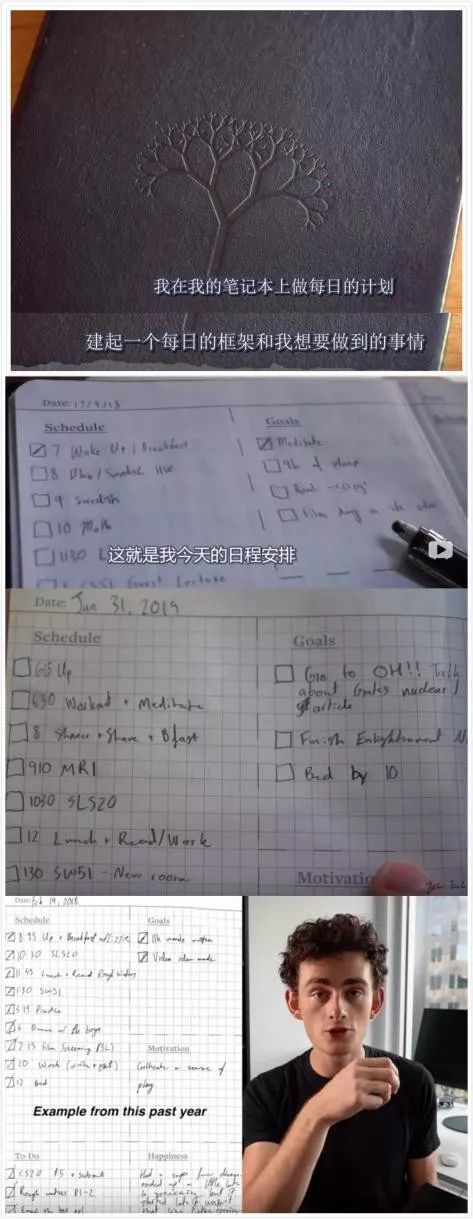 我在我的笔记本上做每日的计划
建起一个每日的框架和我想要做到的事情
Date: 17/9/18
Schedule
7 Wake Up / Breakfast
8 / Swedish HW
9 Swedish
10 Math
1130 L
Guest Lecture
Goals
Meditate
9h of sleep
Read
Film day in the
这就是我今天的日程安排
Date: Jun 31, 2019
Schedule
615 Up
630 Workout + Meditate
8 Shower + Shave + Bfast
910 MR1
1030 SLS20
12 Lunch + Read/Work
130 SW51 - New room
Goals
Go to OH!! Talk
about Gates nuclear
article
Finish Enlightenment
Bed by 10
Motivatio
Date: Feb 19, 2018
Schedule
8 45 Up + Breakfast
10 30 SLS20
11 45 Lunch + Read Rough Waters
1 30 SW51
3 15 Practice
6 Dinner w/ the boys
7 15 Film Screening
10 Work
12 Bed
Goals
11k words written
Video idea made
Motivation
Cultivate a sense of
play
Example from this past year
To Do
CS20 P5 + submit
Rough waters P1-2
Happiness
Had a super fun
ended up a little late
to
started late
that